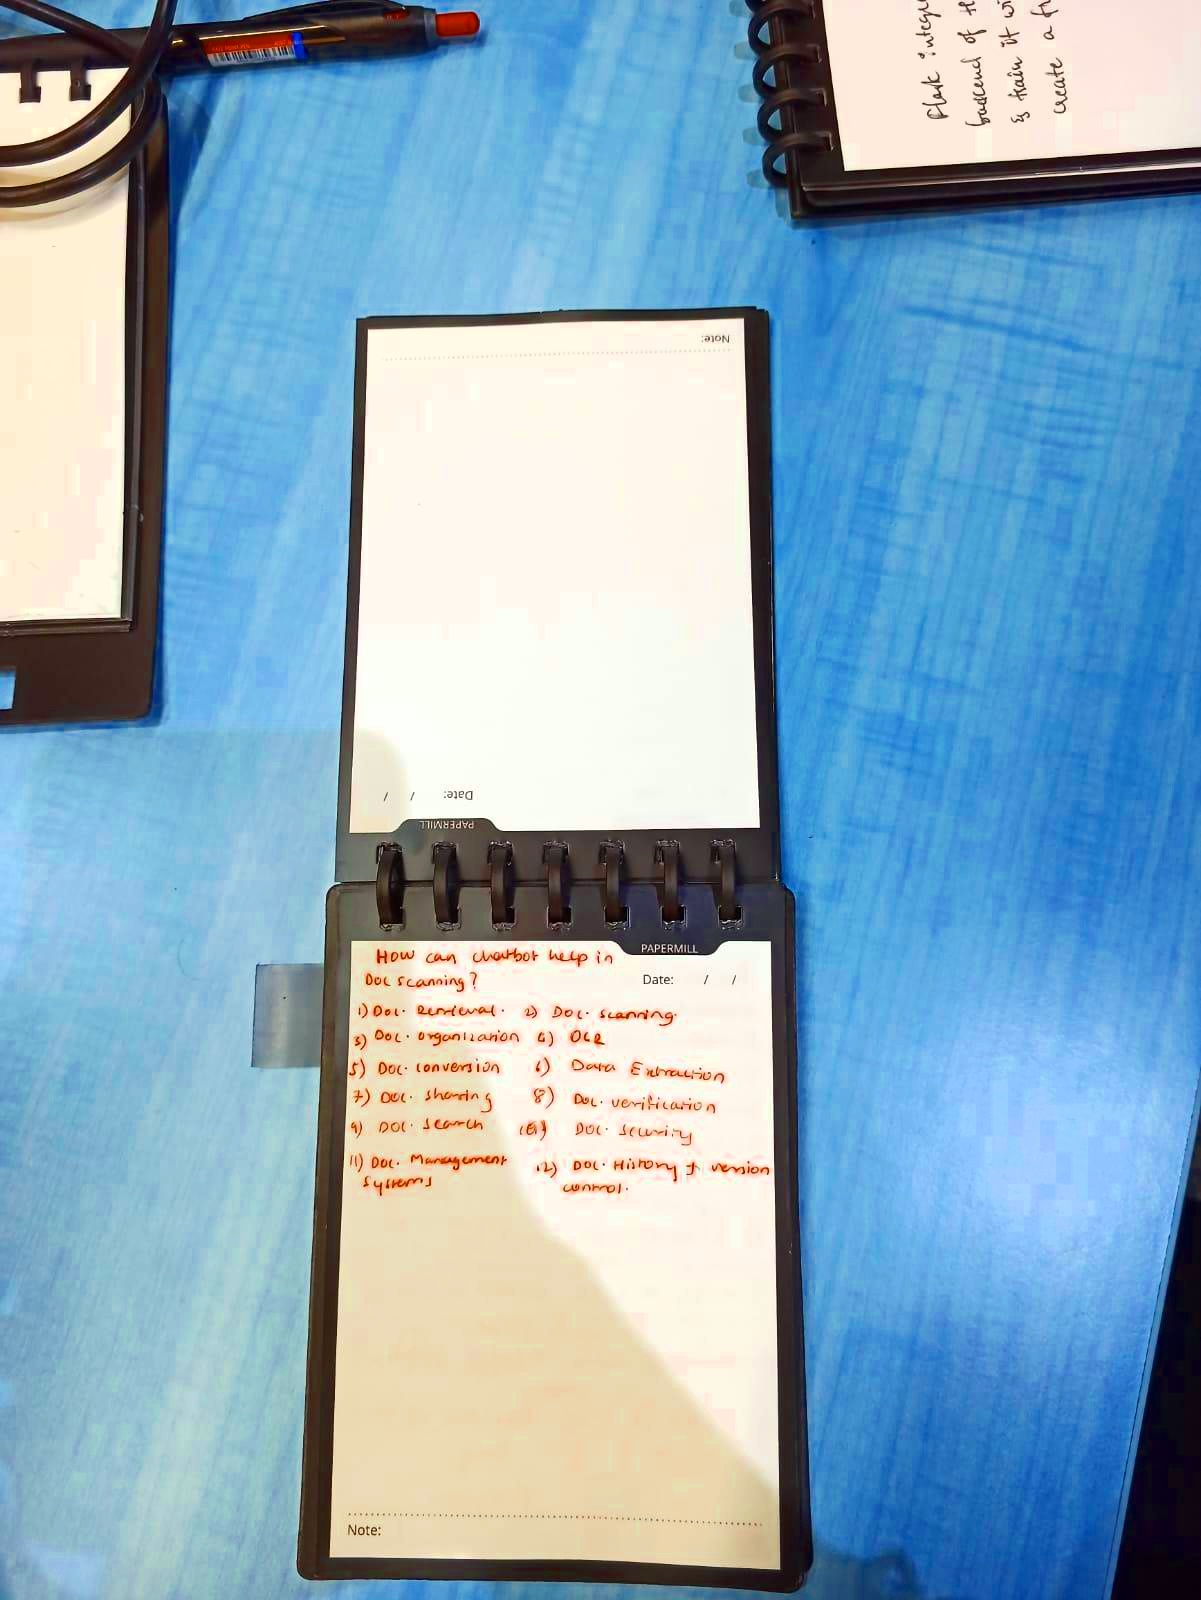 Flask integ
backend of th
& train it wi
create a fr
Note:
Date: / /
PAPERMILL
PAPERMILL
Date: / /
How can chatbot help in
Doc scanning?
1) Doc. Retrieval. 2) Doc. scanning.
3) Doc. organization 4) OCR
5) Doc. conversion 6) Data Extraction
7) Doc. sharing 8) Doc. verification
9) Doc. search 10) Doc. security
11) Doc. Management 12) Doc. History & version
systems control.
Note: